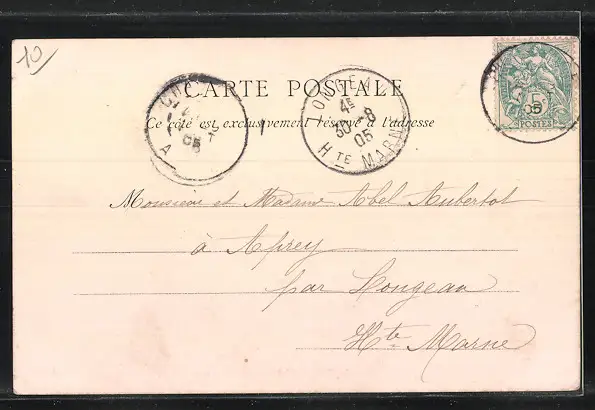 10
CARTE POSTALE
Ce côté est exclusivement réservé à l'adresse
LONGEAU
4E
30 -8
05
HTE MARNE
05
A
05
5
POSTES
Monsieur et Madame Abel Aubertot
à Aprey
par Longeau
Hte Marne